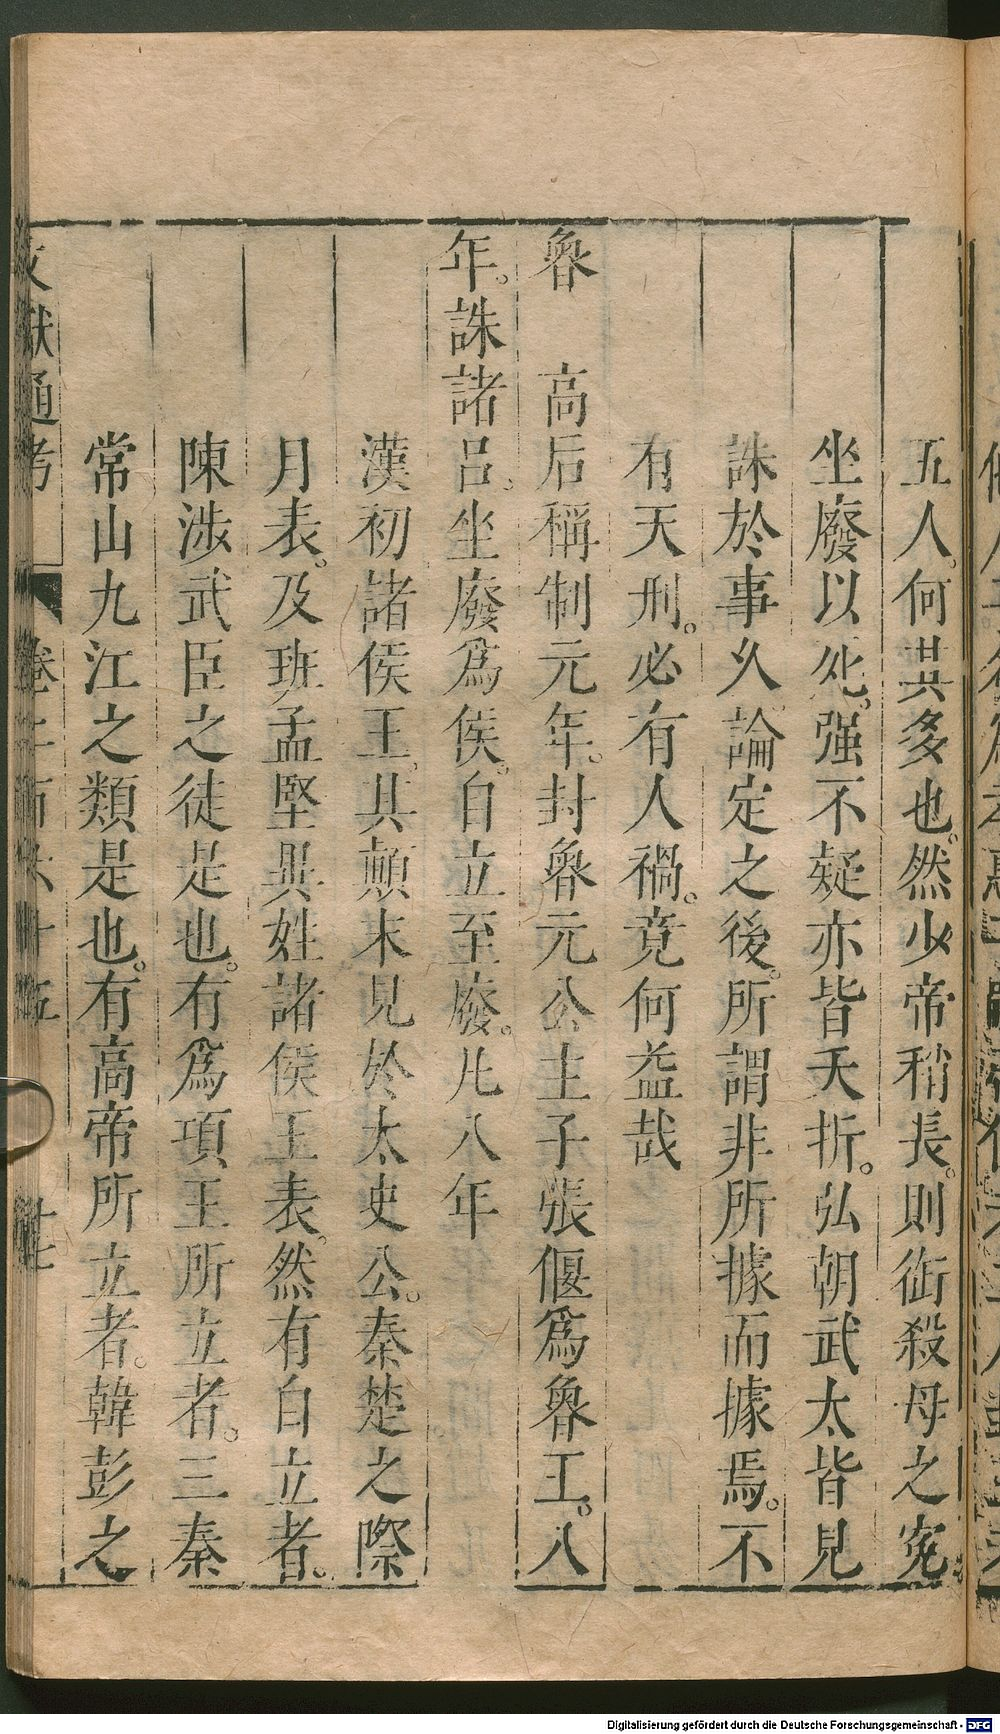 五人。何其多也。然少帝稍長。則衒殺母之寃
坐廢以死。强不疑亦皆夭折。弘朝武太皆見
誅於事久論定之後。所謂非所據而據焉。不
有天刑。必有人禍。竟何益哉
魯 高后稱制元年。封魯元公主子張偃爲魯王。八
年。誅諸呂。坐廢爲侯。自立至廢。凡八年
漢初諸侯王。其顛末見於太史公。秦楚之際
月表。及班孟堅異姓諸侯王表。然有自立者。
陳涉武臣之徒是也。有爲項王所立者。三秦
常山九江之類是也。有高帝所立者。韓彭之
文獻通考 卷二百六十五 十七
Digitalisierung gefördert durch die Deutsche Forschungsgemeinschaft - DFG